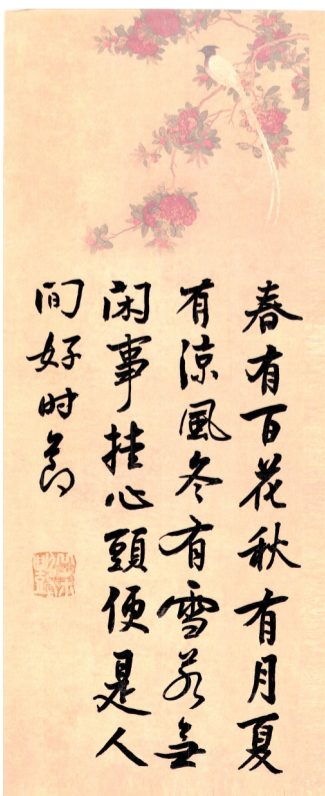 春有百花秋有月夏
有凉風冬有雪若無
闲事挂心頭便是人
间好时節